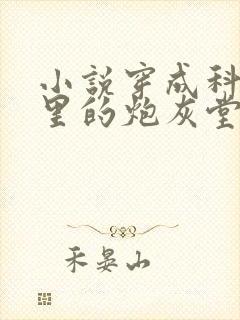 小说穿成科
里的炮灰堂
禾晏山